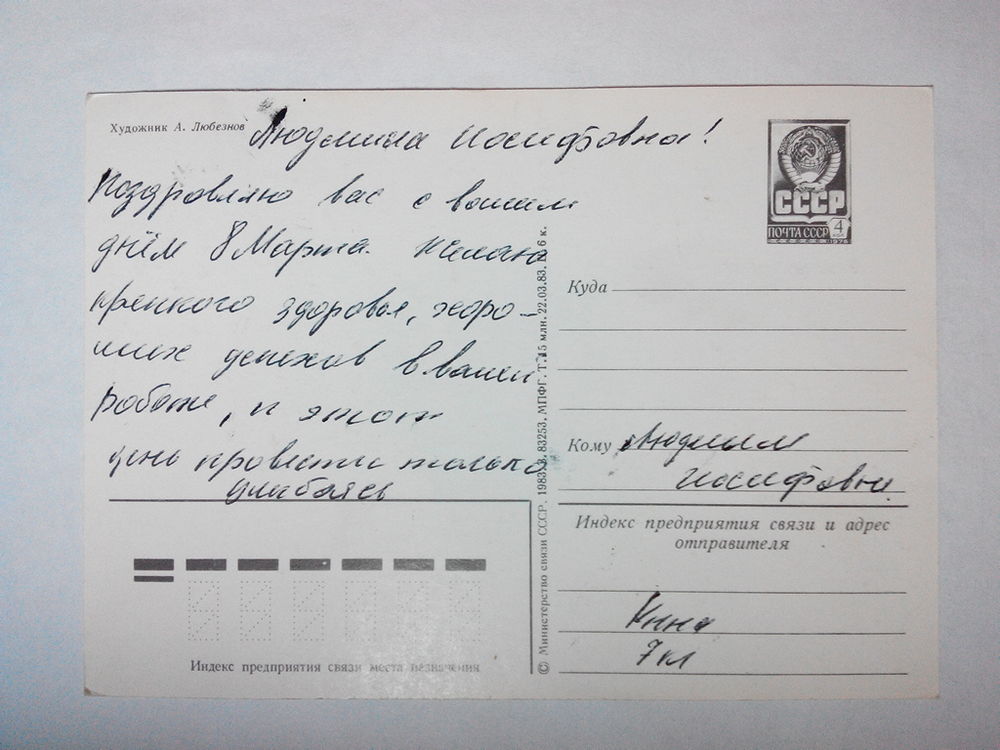 Художник А. Любезнов
Людмила Иосифовна!
Поздравляю вас с вашим
днём 8 Марта. Желаю
крепкого здоровья, хоро-
ших успехов в вашей
работе, и этот
день провести только
улыбаясь
СССР
ПОЧТА СССР 4
Куда
Кому Людмилы
Иосифовны
Индекс предприятия связи и адрес
отправителя
7 кл
Индекс предприятия связи места назначения
© Министерство связи СССР. 1983. З. 83253. МПФГ. Т. 15 млн. 22.03.83. Ц. 6 к.